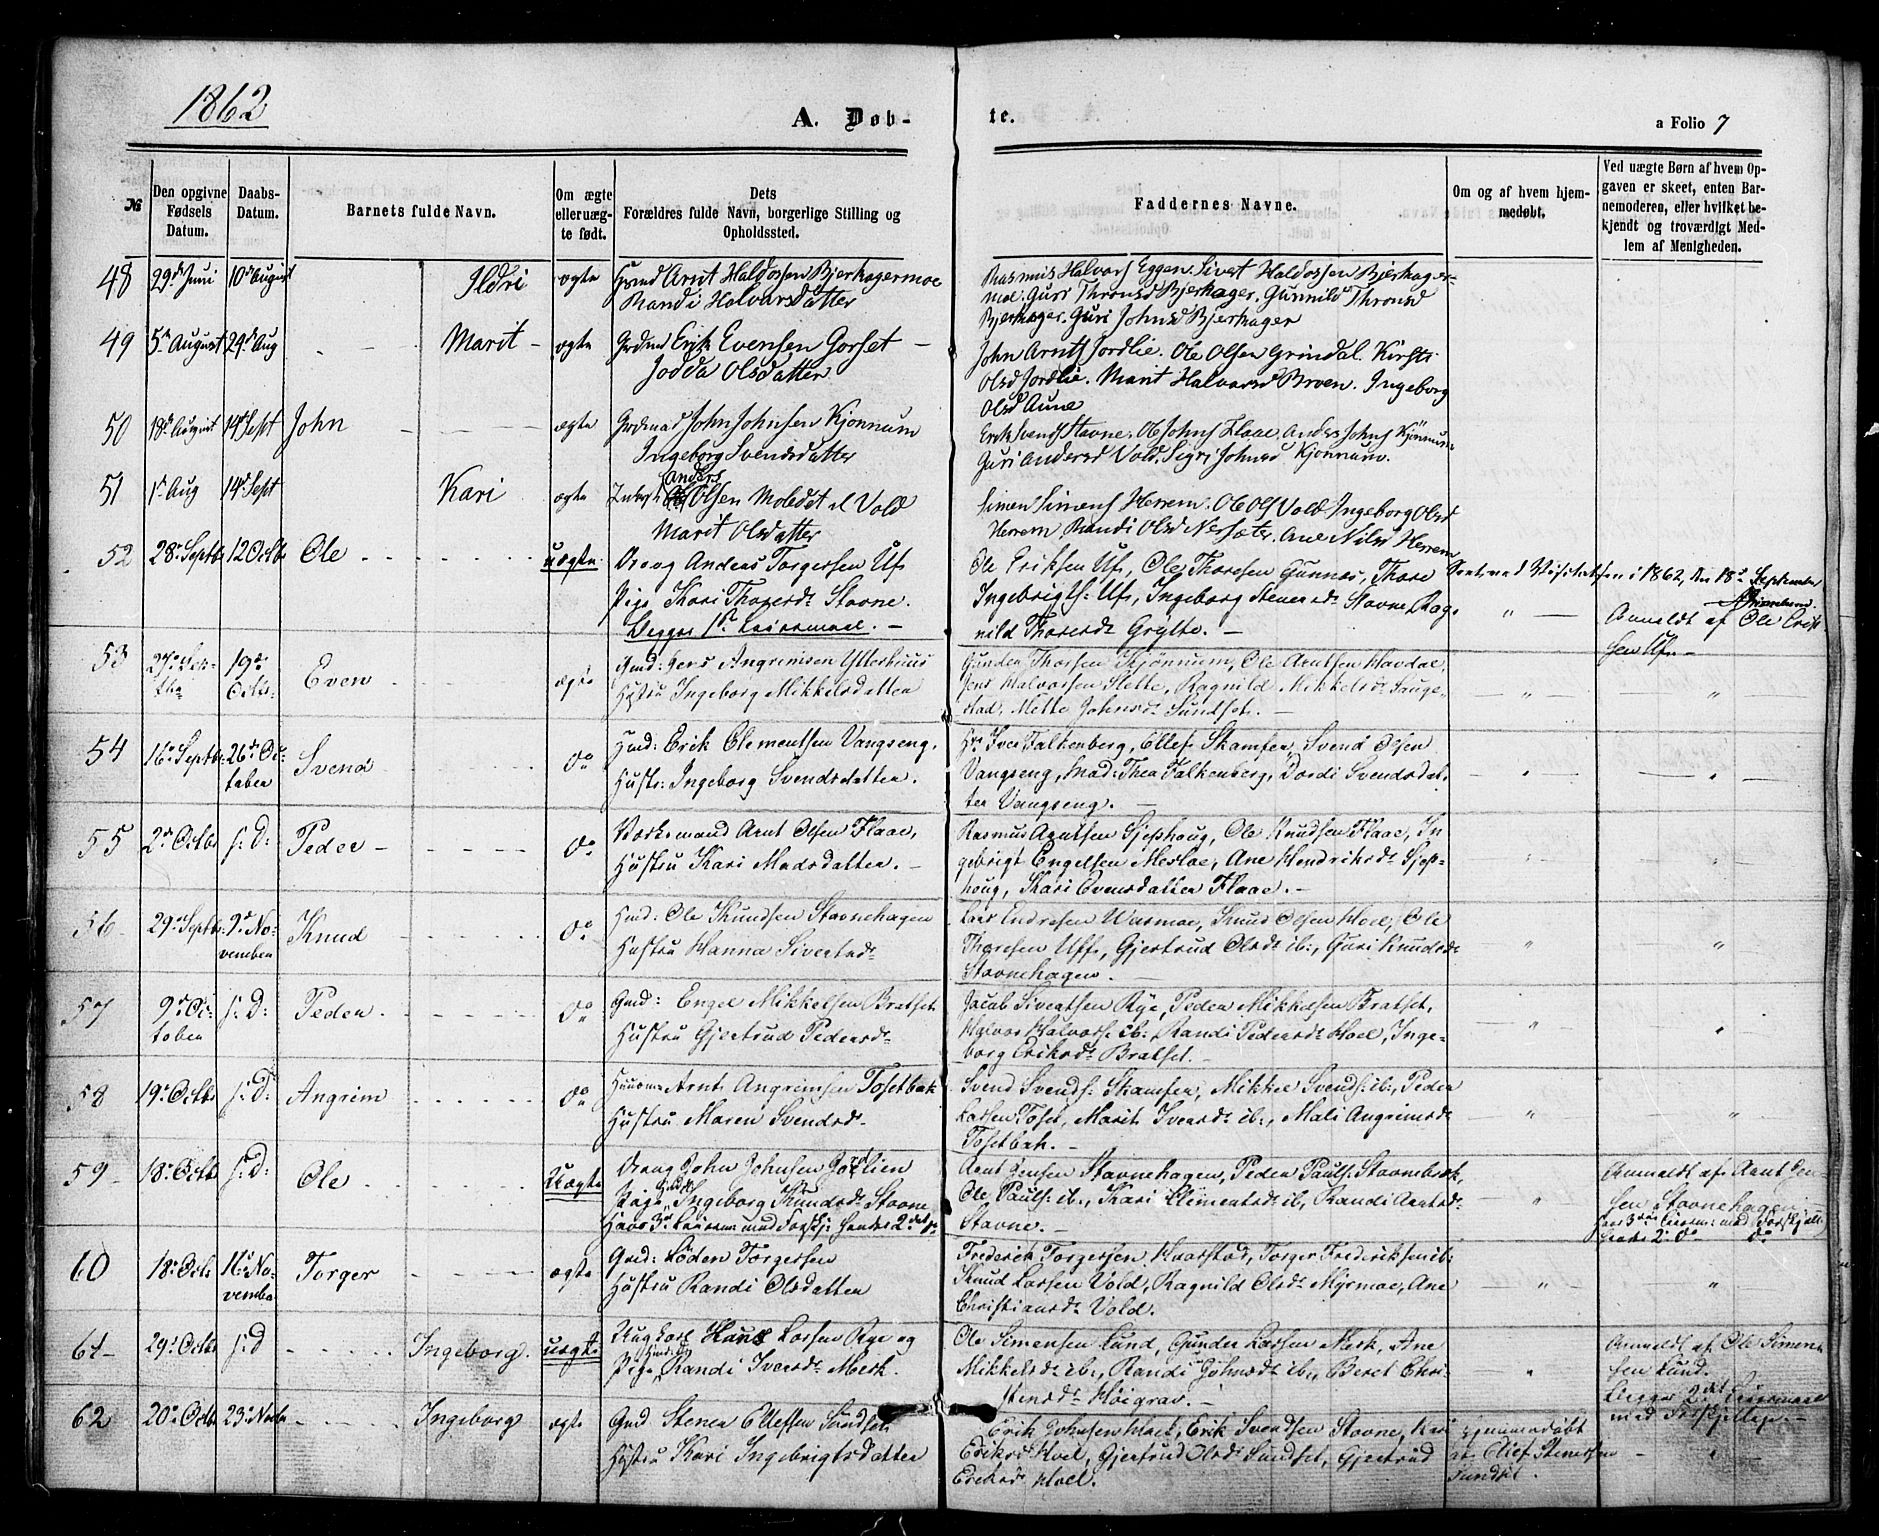 1862
A. Døb-
te.
a Folio 7
№
Den opgivne
Fødsels
Datum.
Daabs-
Datum.
Barnets fulde Navn.
Om ægte
eller uæg-
te født.
Dets
Forældres fulde Navn, borgerlige Stilling og
Opholdssted.
Faddernes Navne.
Om og af hvem hjem-
medøbt.
Ved uægte Børn af hvem Op-
gaven er skeet, enten Bar-
nemoderen, eller hvilket be-
kjendt og troværdigt Med-
lem af Menigheden.
48 29de Juni 10d August Ildri ægte Arnt Haldossen Bjerkagermoe
Randi Halvarsdatter
Rasmus Halvars Eggen. Sivert Haldossen Bjerkager-
moe. Guri Thronsd Bjerkager. Gunnild Thronsd
Bjerkager. Guri Johnsd Bjerkager
49 5te August 24d Aug Marit - ægte Grdmd Erik Evensen Gorset -
Jodda Olsdatter
John Arnts Jordlie. Ole Olsen Grindal. Kirsti
Olsd Jordlie. Marit Halvorsd Broen. Ingeborg
Olsd Aune
50 18d August 14d Sept John ægte Grdmad John Johnsen Kjønnum
Ingeborg Svendsdatter
Erik Svends Stavne. Ole Johns Flaae. Anders Johns Kjönnum
Guri Andersd Vold. Sigri Johnsd Kjonnum.
51 1d Aug 14d Sept Kari ægte Anders
Olsen Vold
Marit Olsdatter
Simen Simens Herrem. Ole Ols Vold Ingeborg Olsd
Herrem. Randi Olsd. Ane Nilsd Herrem
52 28de Septbr 12 Octbr Ole uægte: Dreng Anders Torgersen Uf,
Pige Kari Thoresd: Stavne.
Begges 1ste Leiermaal. -
Ole Eriksen Uf, Ole Thoresen Gunnes, Thore
Ingebrigts: Uf, Ingeborg Stenersd: Stavne, Rag-
nild Thoresd: Grytte. -
Seet ved Visitatsen i 1862, den 18de September
Anmeldt af Ole Erik-
sen Uf. -
53 27de Sep-
tbr 19de
Octbr: Even ægte Gmd: Jens Angrimsen Ytterhuus
Hustru Ingeborg Mikkelsdatter
Gunder Thorsen Kjønnum, Ole Arntsen Havdal,
Jens Halvorsen Slette, Ragnild Mikkelsd: Sauge-
stad, Mette Johnsd: Sundset. -
54 16de Septbr: 26de Oc-
tober Svend do Hmd: Erik Clementsen Vangseng.
Hustr: Ingeborg Svendsdatter.
Hr: Iver Falkenberg, Ellef Skamfer, Svend Olsen
Vangseng, Mad: Thea Falkenberg, Dordi Svendsdat-
ter Vangseng. -
55 2de Octbr s: D: Peder - do Verksmand Arnt Olsen Flaae,
Hustru Kari Madsdatter. -
Rasmus Arntsen Sjephoug, Ole Knudsen Flaae, In
gebrigt Engelsen Mesloe, Ane Hendriksd: Sjep-
houg, Kari Evensdatter Flaae. -
56 29de Septbr: 9de No-
vember Knud do Hmd: Ole Knudsen Stavnehagen
Hustru Hanna Sivertsd:
Lars Endresen Warmoe, Knud Olsen Hoel, Ole
Thoresen Uff, Gjertrud Olsd: ib:, Guri Knudsd:
Stavnehagen. -
57 9de Oc-
tober s: D: Peder. do Gmd: Engel Mikkelsen Bratset.
Hustru Gjertrud Pedersd:
Jacob Sivertsen Rye, Peder Mikkelsen Bratset,
Halvor Halvors: ib:, Randi Pedersd: Hoel, Inge-
borg Eriksd: Bratset. -
58 19de Octbr s: D: Angrim do Arnt Angrimsen Tosetbak
Hustru Maren Svendsd:
Svend Svends: Skamfer, Mikkel Svends: ib:, Peder
Larsen Toset, Marit Iversd: ib:, Mali Angrimsd:
Tosetbak. -
59 18de Octbr s: D: Ole Uægte Dreng John Johnsen Jordlien
Pige Ingeborg Knudsd: Stavne
Hans 3de
Arnt Jensen Stavnehagen, Peder Pauls: Stavnebrek,
Ole Pauls: ib:, Kari Klementsd: ib:, Randi Arntsd:
Stavne. -
Anmeldt af Arnt Jen-
sen Stavnehagen
60 18de Octb 16de No-
vember Torger ægte Gmd: Løden Torgersen
Hustru Randi Olsdatter
Frederik Torgersen Haarstad, Torger Frederiksen ib:
Knud Larsen Vold, Ragnild Olsd: Myrmoe, Ane
Christiansd: Vold.
61 29de Octbr s: D Ingeborg. uægte Ungkarl Hans Larsen Rye og
Pige Randi Iversd: Merk.
Ole Simensen Lund, Gunder Larsen Merk, Ane
Mikkelsd: ib:, Randi Johnsd: ib:, Beret Chri-
stensd: Høigrav. -
Anmeldt af Ole Simen-
sen Lund.
Begges 2det Leiermaal
62 20de Octbr 23de Novbr Ingeborg ægte Gmd Stener Ellefsen Sundset
Hustru Kari Ingebrigtsdatter
Erik Johnsen Hoel, Erik Svendsen Stavne, Kari
Eriksd: Hoel, Gjertrud Olsd: Sundset, Gjertrud
Eriksd: Hoel.
Hjemmedøbt
af Ellef Stenersen
Sundset.